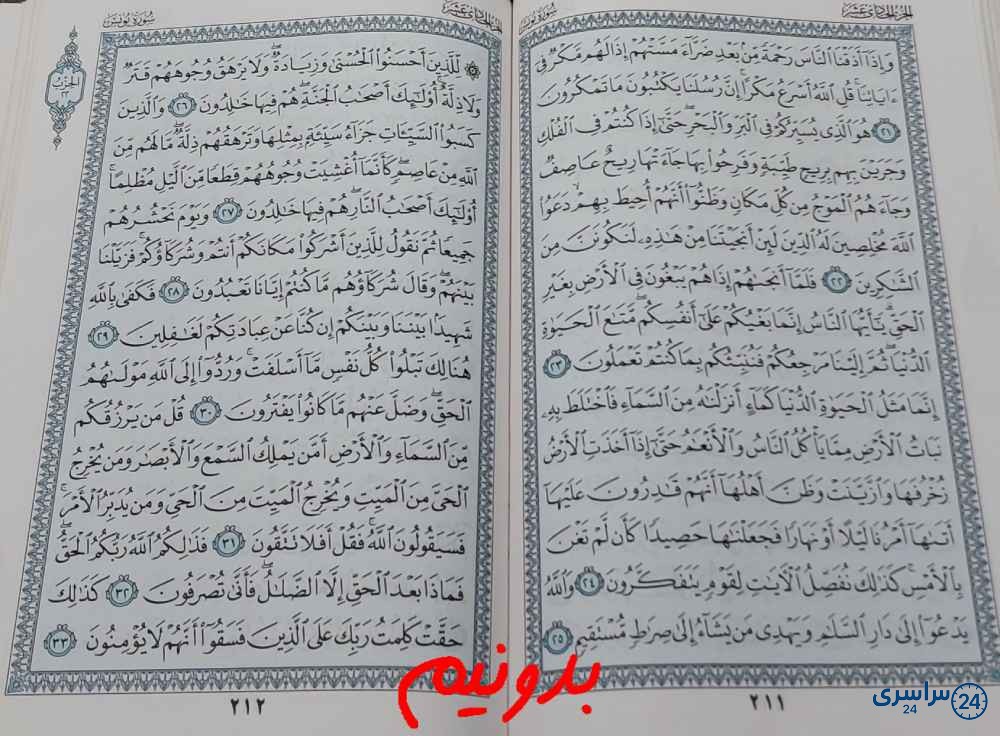 الجزء الحادي عشر
سورة يونس
وَإِذَآ أَذَقْنَا ٱلنَّاسَ رَحْمَةً مِّنۢ بَعْدِ ضَرَّآءَ مَسَّتْهُمْ إِذَا لَهُم مَّكْرٌ فِىٓ
ءَايَاتِنَا ۚ قُلِ ٱللَّهُ أَسْرَعُ مَكْرًا ۚ إِنَّ رُسُلَنَا يَكْتُبُونَ مَا تَمْكُرُونَ
٢١ هُوَ ٱلَّذِى يُسَيِّرُكُمْ فِى ٱلْبَرِّ وَٱلْبَحْرِ ۖ حَتَّىٰٓ إِذَا كُنتُمْ فِى ٱلْفُلْكِ
وَجَرَيْنَ بِهِم بِرِيحٍ طَيِّبَةٍ وَفَرِحُوا۟ بِهَا جَآءَتْهَا رِيحٌ عَاصِفٌ
وَجَآءَهُمُ ٱلْمَوْجُ مِن كُلِّ مَكَانٍ وَظَنُّوٓا۟ أَنَّهُمْ أُحِيطَ بِهِمْ ۙ دَعَوُا۟
ٱللَّهَ مُخْلِصِينَ لَهُ ٱلدِّينَ لَئِنْ أَنجَيْتَنَا مِنْ هَٰذِهِۦ لَنَكُونَنَّ مِنَ
ٱلشَّٰكِرِينَ ٢٢ فَلَمَّآ أَنجَىٰهُمْ إِذَا هُمْ يَبْغُونَ فِى ٱلْأَرْضِ بِغَيْرِ
ٱلْحَقِّ ۗ يَٰٓأَيُّهَا ٱلنَّاسُ إِنَّمَا بَغْيُكُمْ عَلَىٰٓ أَنفُسِكُم ۖ مَّتَٰعَ ٱلْحَيَوٰةِ
ٱلدُّنْيَا ۖ ثُمَّ إِلَيْنَا مَرْجِعُكُمْ فَنُنَبِّئُكُم بِمَا كُنتُمْ تَعْمَلُونَ ٢٣
إِنَّمَا مَثَلُ ٱلْحَيَوٰةِ ٱلدُّنْيَا كَمَآءٍ أَنزَلْنَٰهُ مِنَ ٱلسَّمَآءِ فَٱخْتَلَطَ بِهِۦ
نَبَاتُ ٱلْأَرْضِ مِمَّا يَأْكُلُ ٱلنَّاسُ وَٱلْأَنْعَٰمُ حَتَّىٰٓ إِذَآ أَخَذَتِ ٱلْأَرْضُ
زُخْرُفَهَا وَٱزَّيَّنَتْ وَظَنَّ أَهْلُهَآ أَنَّهُمْ قَٰدِرُونَ عَلَيْهَآ
أَتَىٰهَآ أَمْرُنَا لَيْلًا أَوْ نَهَارًا فَجَعَلْنَٰهَا حَصِيدًا كَأَن لَّمْ تَغْنَ
بِٱلْأَمْسِ ۚ كَذَٰلِكَ نُفَصِّلُ ٱلْءَايَٰتِ لِقَوْمٍ يَتَفَكَّرُونَ ٢٤ وَٱللَّهُ
يَدْعُوٓا۟ إِلَىٰ دَارِ ٱلسَّلَٰمِ وَيَهْدِى مَن يَشَآءُ إِلَىٰ صِرَٰطٍ مُّسْتَقِيمٍ ٢٥
٢١١
الجزء الحادي عشر
سورة يونس
الحزب
٢٢
لِّلَّذِينَ أَحْسَنُوا۟ ٱلْحُسْنَىٰ وَزِيَادَةٌ ۖ وَلَا يَرْهَقُ وُجُوهَهُمْ قَتَرٌ
وَلَا ذِلَّةٌ ۚ أُو۟لَٰٓئِكَ أَصْحَٰبُ ٱلْجَنَّةِ ۖ هُمْ فِيهَا خَٰلِدُونَ ٢٦ وَٱلَّذِينَ
كَسَبُوا۟ ٱلسَّيِّـَٔاتِ جَزَآءُ سَيِّئَةٍۭ بِمِثْلِهَا وَتَرْهَقُهُمْ ذِلَّةٌ ۖ مَّا لَهُم مِّنَ
ٱللَّهِ مِنْ عَاصِمٍ ۖ كَأَنَّمَآ أُغْشِيَتْ وُجُوهُهُمْ قِطَعًا مِّنَ ٱلَّيْلِ مُظْلِمًا ۚ
أُو۟لَٰٓئِكَ أَصْحَٰبُ ٱلنَّارِ ۖ هُمْ فِيهَا خَٰلِدُونَ ٢٧ وَيَوْمَ نَحْشُرُهُمْ
جَمِيعًا ثُمَّ نَقُولُ لِلَّذِينَ أَشْرَكُوا۟ مَكَانَكُمْ أَنتُمْ وَشُرَكَآؤُكُمْ ۚ فَزَيَّلْنَا
بَيْنَهُمْ ۖ وَقَالَ شُرَكَآؤُهُم مَّا كُنتُمْ إِيَّانَا تَعْبُدُونَ ٢٨ فَكَفَىٰ بِٱللَّهِ
شَهِيدًۢا بَيْنَنَا وَبَيْنَكُمْ إِن كُنَّا عَنْ عِبَادَتِكُمْ لَغَٰفِلِينَ ٢٩
هُنَالِكَ تَبْلُوا۟ كُلُّ نَفْسٍ مَّآ أَسْلَفَتْ ۚ وَرُدُّوٓا۟ إِلَى ٱللَّهِ مَوْلَىٰهُمُ
ٱلْحَقِّ ۖ وَضَلَّ عَنْهُم مَّا كَانُوا۟ يَفْتَرُونَ ٣٠ قُلْ مَن يَرْزُقُكُم
مِّنَ ٱلسَّمَآءِ وَٱلْأَرْضِ أَمَّن يَمْلِكُ ٱلسَّمْعَ وَٱلْأَبْصَٰرَ وَمَن يُخْرِجُ
ٱلْحَىَّ مِنَ ٱلْمَيِّتِ وَيُخْرِجُ ٱلْمَيِّتَ مِنَ ٱلْحَىِّ وَمَن يُدَبِّرُ ٱلْأَمْرَ ۚ
فَسَيَقُولُونَ ٱللَّهُ ۚ فَقُلْ أَفَلَا تَتَّقُونَ ٣١ فَذَٰلِكُمُ ٱللَّهُ رَبُّكُمُ ٱلْحَقُّ ۖ
فَمَاذَا بَعْدَ ٱلْحَقِّ إِلَّا ٱلضَّلَٰلُ ۖ فَأَنَّىٰ تُصْرَفُونَ ٣٢ كَذَٰلِكَ
حَقَّتْ كَلِمَتُ رَبِّكَ عَلَى ٱلَّذِينَ فَسَقُوٓا۟ أَنَّهُمْ لَا يُؤْمِنُونَ ٣٣
٢١٢
بدونیم
سراسری 24
24